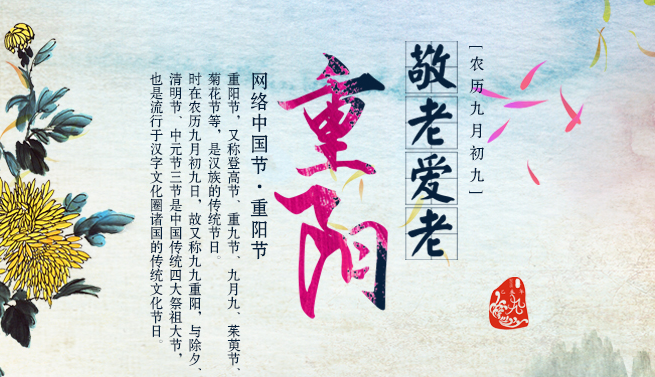 [农历九月初九]
敬老爱老
重阳
网络中国节·重阳节
重阳节，又称登高节、重九节、九月九、茱萸节、
菊花节等，是汉族的传统节日。
时在农历九月初九日，故又称九九重阳，与除夕、
清明节、中元节三节是中国传统四大祭祖大节，
也是流行于汉字文化圈诸国的传统文化节日。